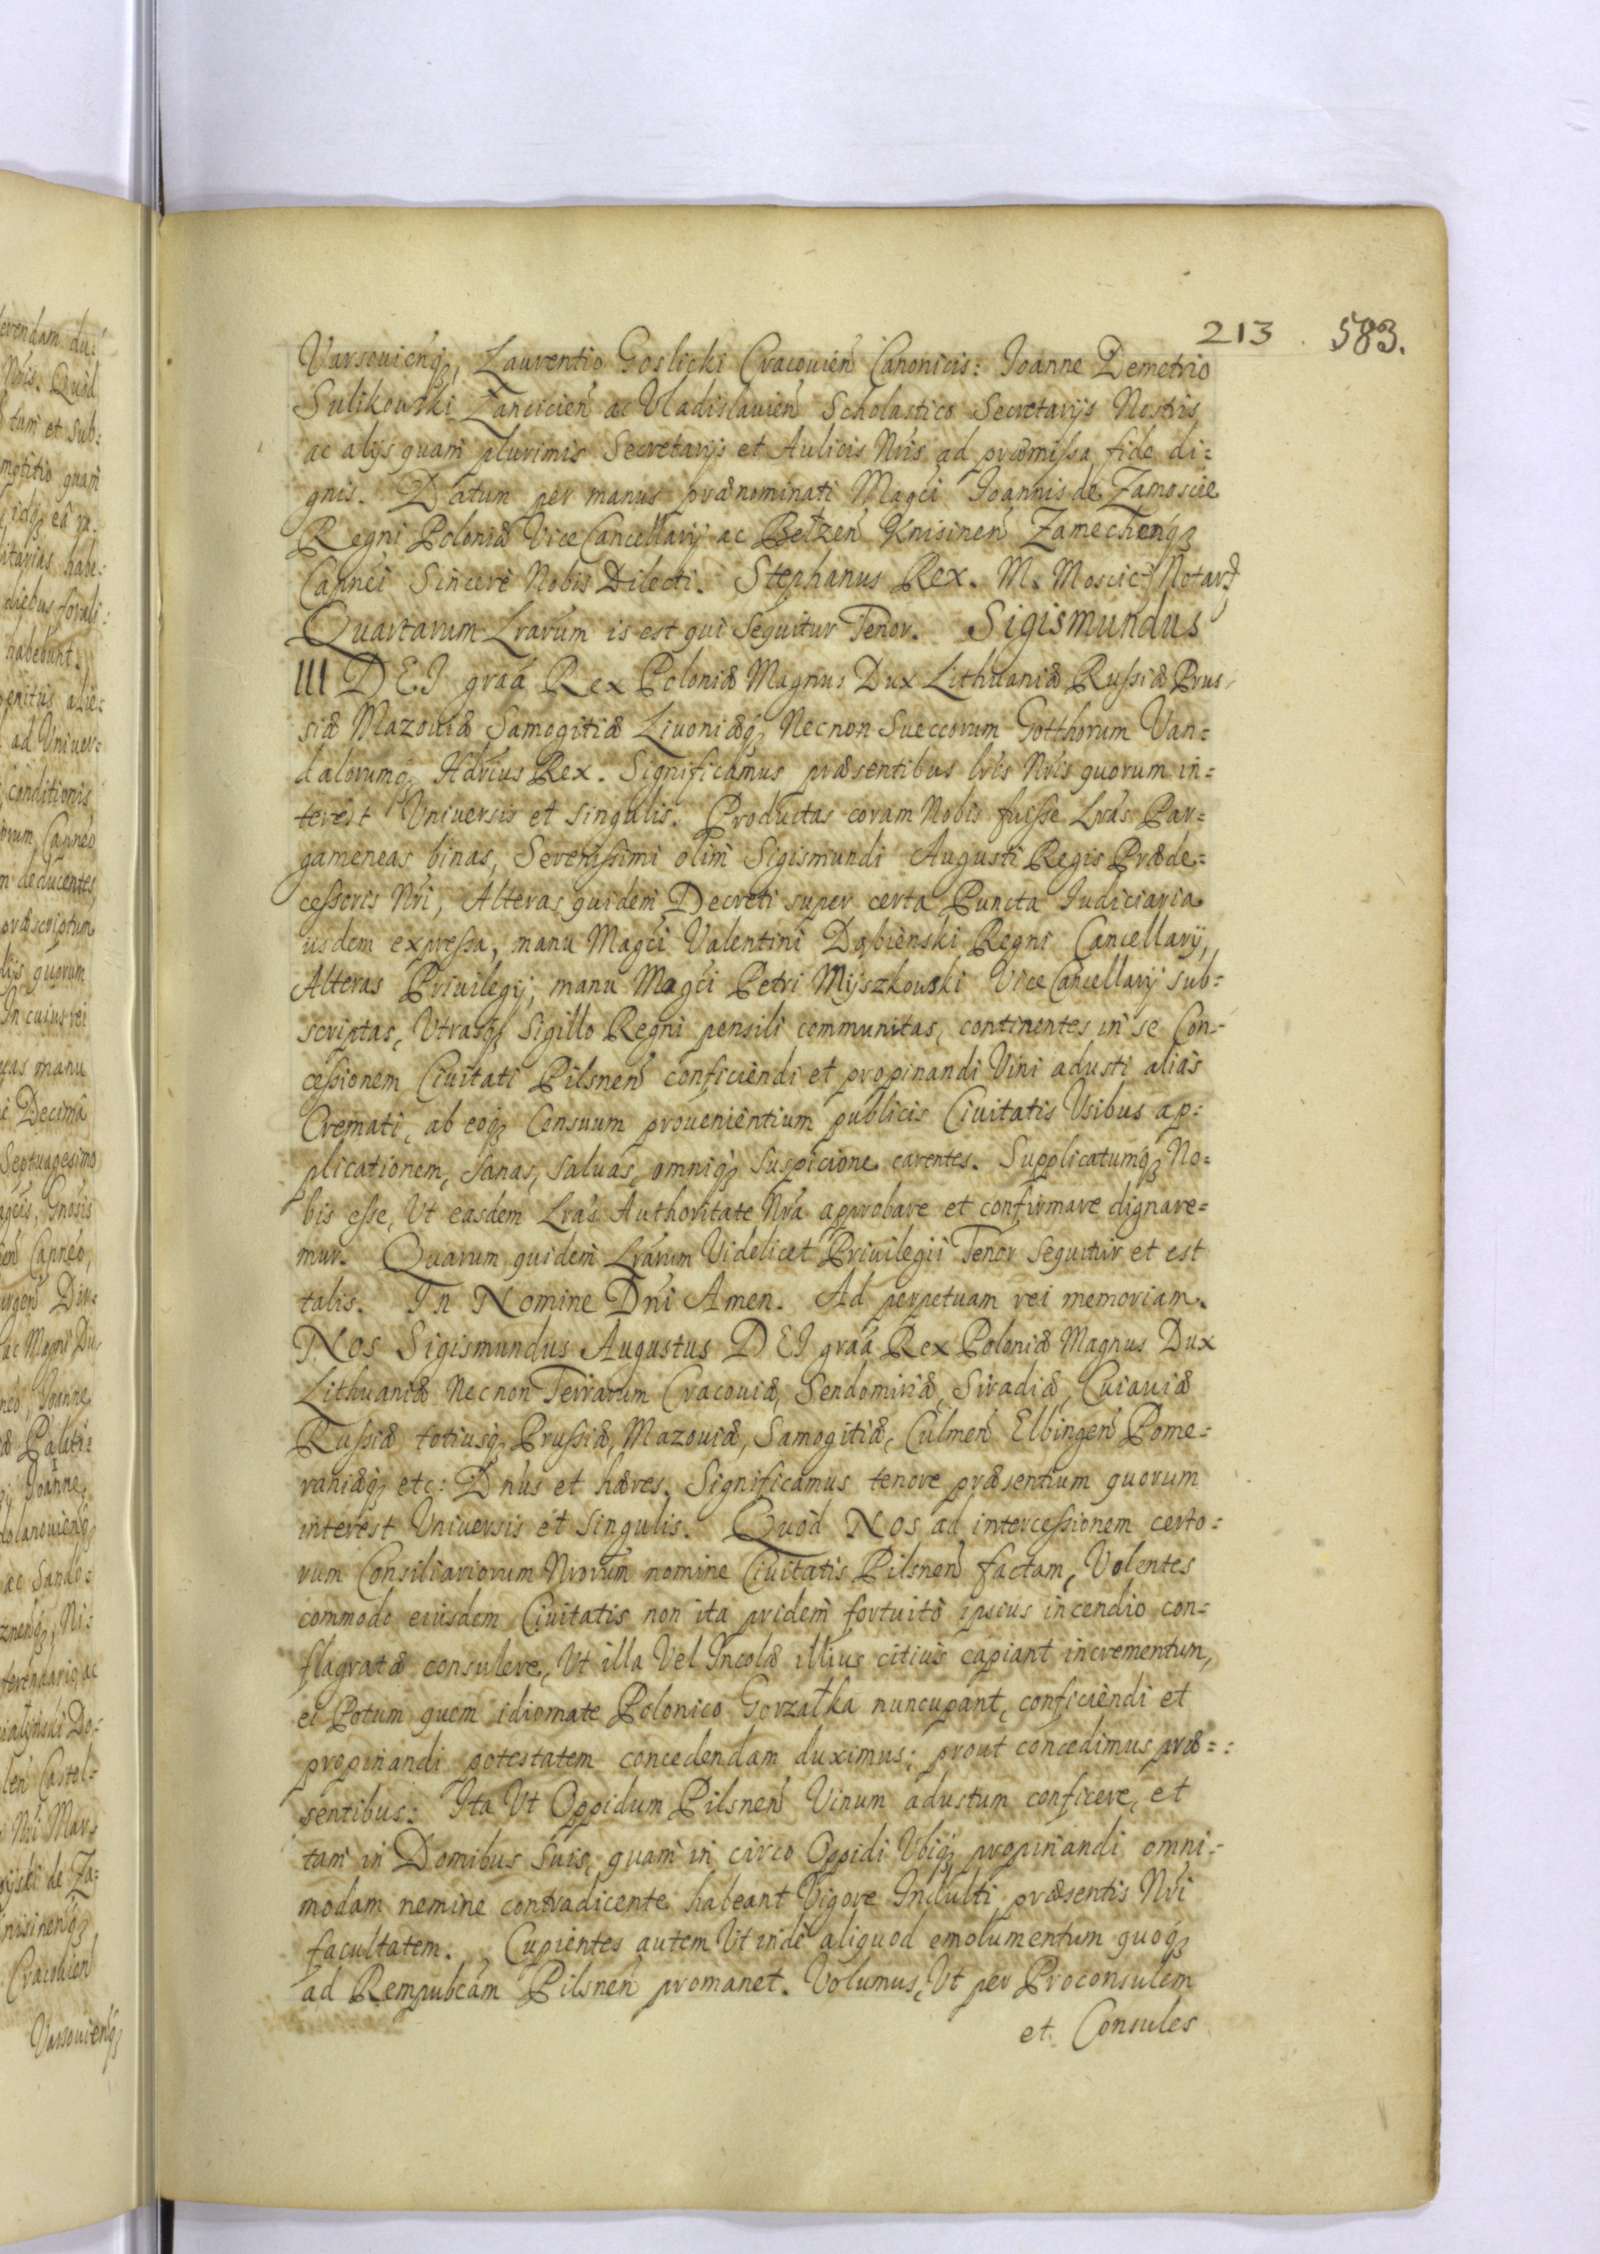 213 583.
Varsovienq3, Laurentio Goslicki Cracovien Canonicis: Joanne Demetrio
Sulikowski Lancicien ac Vladislavien Scholastico Secretarijs Nostris
ac alijs quam plurimis Secretarijs et Aulicis Nris ad præmissa fide di:
gnis. Datum per manus prænominati Magci Joannis de Zamoscie
Regni Poloniæ ViceCancellarij ac Bełzen Knisinen Zamechenq3
Capnei Sincere Nobis Dilecti. Stephanus Rex. M: Moscic: Notar9
Quartarum Lrarum is est qui Sequitur Tenor. Sigismundus
III DEI graa Rex Poloniæ Magnus Dux Lithuaniæ Russiæ Prus-
siæ Mazoviæ Samogitiæ Livoniæq3 Necnon Sueccorum Gotthorum Van=
dalorumq3 Hdrius Rex. Significamus præsentibus lris Nris quorum in=
terest Universis et singulis. Productas coram Nobis fuisse Lras Par=
gameneas binas, Serenissimi olim Sigismundi Augusti Regis Præde=
cessoris Nri, Alteras quidem Decreti super certa Puncta Judiciaria
usdem expressa, manu Magci Valentini Dąbienski Regni Cancellarij,
Alteras Privilegij, manu Magci Petri Myszkowski ViceCancellarij sub=
scriptas, Utrasq3 Sigillo Regni pensili communitas, continentes in se Con-
cessionem Civitati Pilsnen conficiendi et propinandi Vini adusti alias
Cremati, ab eoq3 Censuum provenientium publicis Civitatis Usibus ap:
plicationem, sanas, salvas, omniq3 suspicione carentes. Supplicatumq3 No=
bis esse, Ut easdem Lras Authoritate Nra approbare et confirmare dignare=
mur. Quarum quidem Lrarum Videlicet Privilegii Tenor sequitur et est
talis. In Nomine Dni Amen. Ad perpetuam rei memoriam.
NOS Sigismundus Augustus DEI graa Rex Poloniæ Magnus Dux
Lithuaniæ Necnon Terrarum Cracoviæ, Sendomiriæ, Siradiæ, Cuiaviæ
Russiæ totiusq3 Prussiæ, Mazoviæ, Samogitiæ, Culmen Elbingen Pome=
raniæq3 etc: Dnus et hæres. Significamus tenore præsentium quorum
interest Universis et singulis. Quod NOS ad intercessionem certo=
rum Consiliariorum Nrorum nomine Civitatis Pilsnen factam, Volentes
commodo eiusdem Civitatis non ita pridem fortuitò ipsius incendio con=
flagratæ consulere, Ut illa Vel Incolæ illius citius capiant incrementum,
ei Potum quem idiomate Polonico Gorzałka nuncupant, conficiendi et
propinandi potestatem concedendam duximus; prout concedimus præ=:
sentibus: Ita Ut Oppidum Pilsnen Vinum adustum conficere, et
tam in Domibus suis, quam in circo Oppidi Ubiq3 propinandi omni-
modam nemine contradicente habeant Vigore Indulti præsentis Nri
facultatem. Cupientes autem Ut inde aliquod emolumentum quoq3
ad Rempubcam Pilsnen promanet. Volumus, Ut per Proconsulem
et Consules